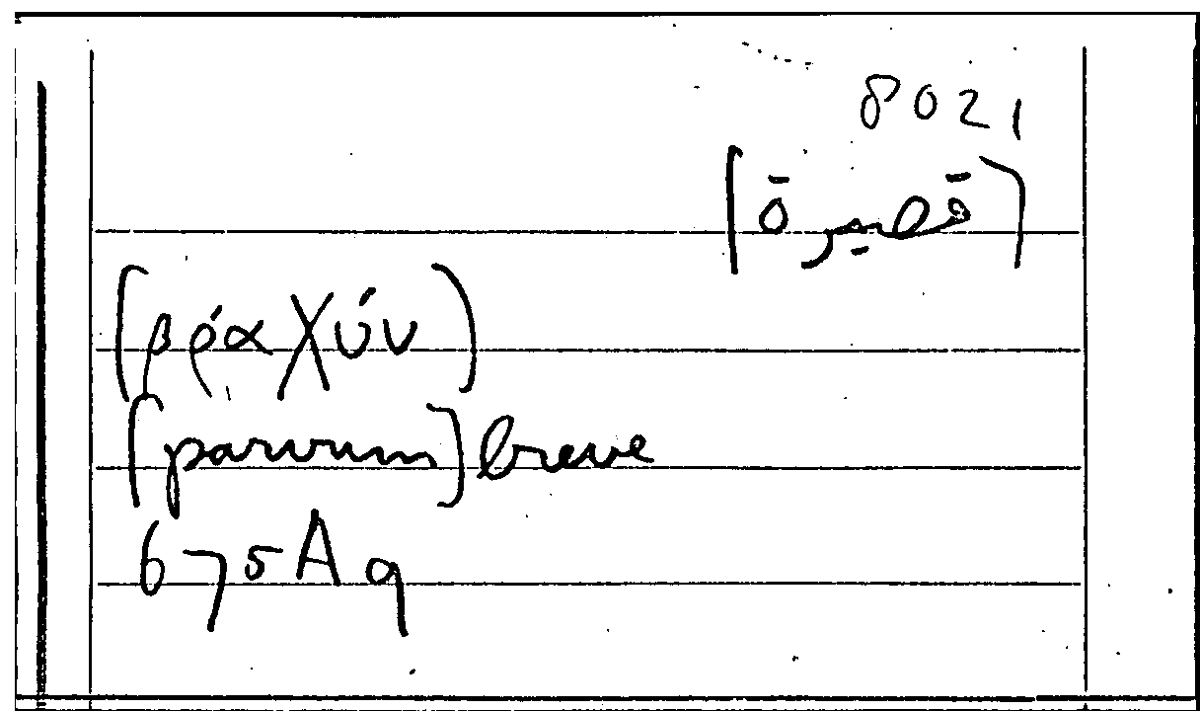 8021
[قصيرة]
(βράχύν)
[parvum] breve
675A9